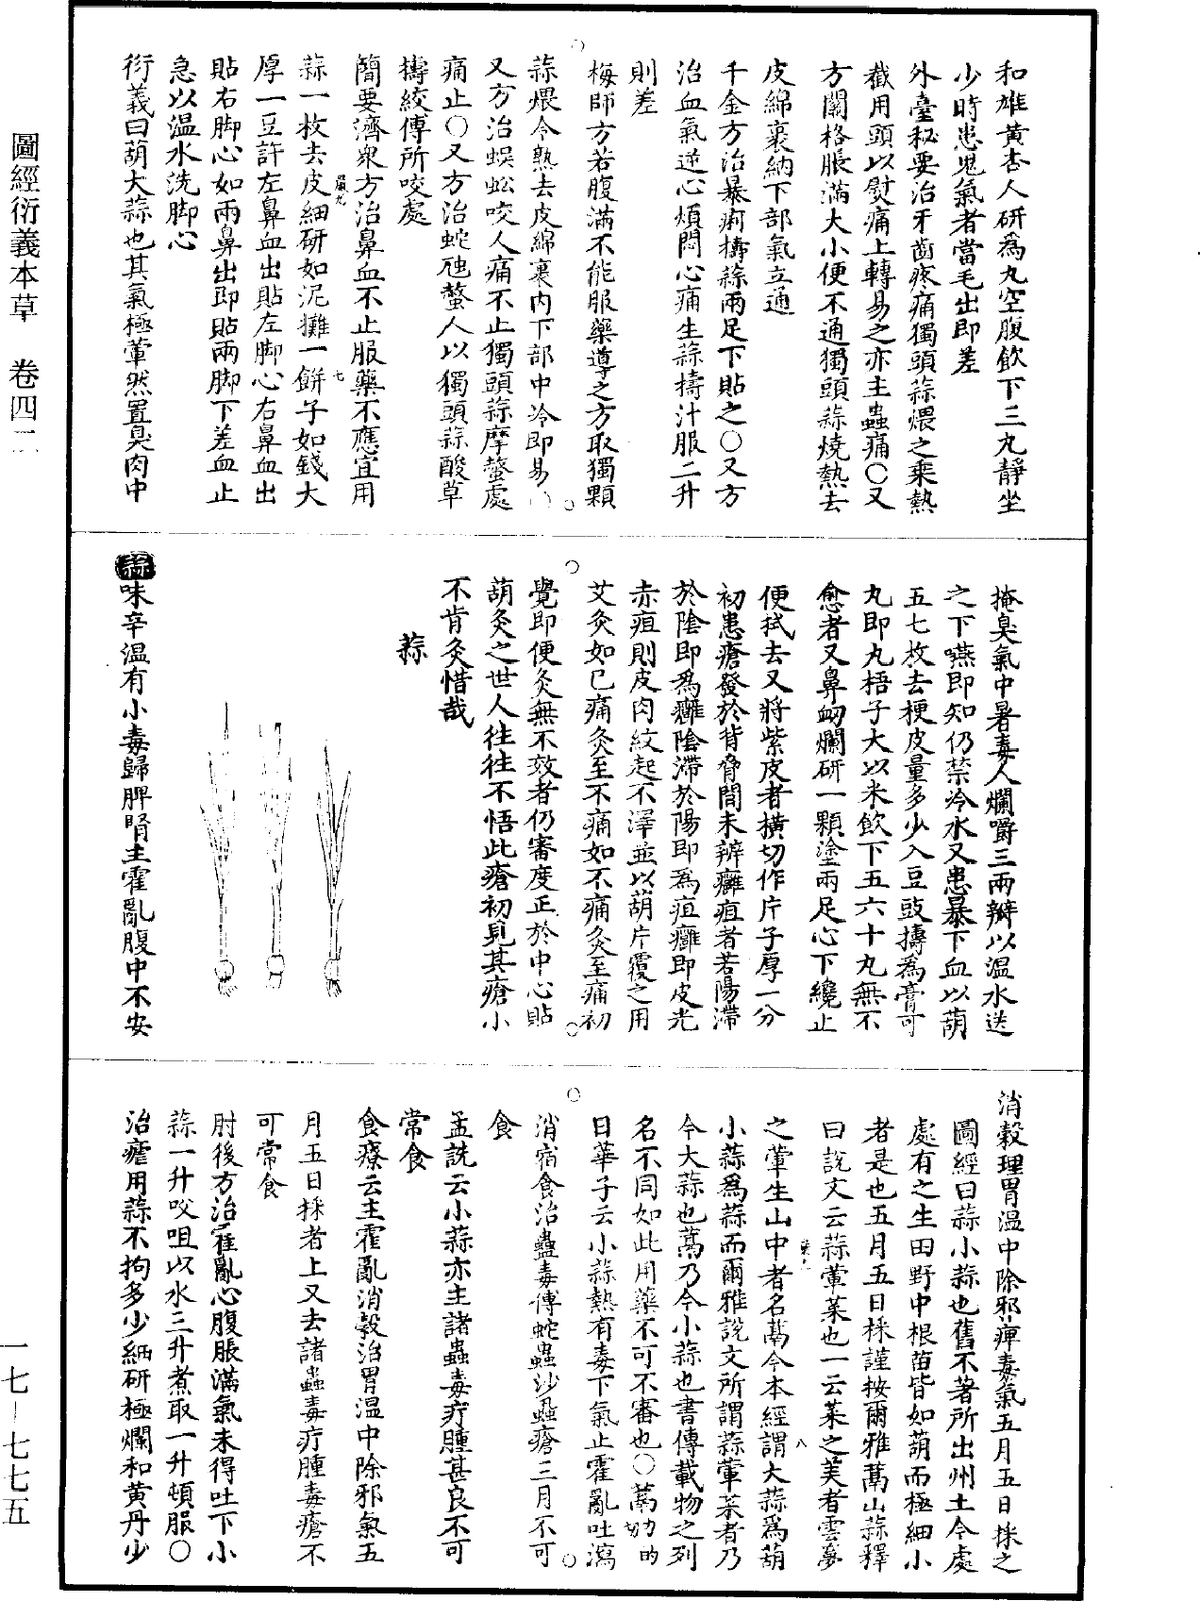 和雄黃杏人研爲丸空腹飲下三丸靜坐
少時患鬼氣者當毛出即差
外臺秘要治牙齒疼痛獨頭蒜煨之乘熱
截用頭以熨痛上轉易之亦主蟲痛○又
方關格脹滿大小便不通獨頭蒜燒熱去
皮綿裹納下部氣立通
千金方治暴痢擣蒜兩足下貼之○又方
治血氣逆心煩悶心痛生蒜擣汁服二升
則差
梅師方若腹滿不能服藥導之方取獨顆
蒜煨令熟去皮綿裹內下部中冷即易○
又方治蜈蚣咬人痛不止獨頭蒜摩螫處
痛止○又方治蛇虺螫人以獨頭蒜酸草
擣絞傅所咬處
簡要濟衆方治鼻血不止服藥不應宜用
蒜一枚去皮細研如泥攤一餅子如錢大
厚一豆許左鼻血出貼左脚心右鼻血出
貼右脚心如兩鼻出即貼兩脚下差血止
急以温水洗脚心
衍義曰葫大蒜也其氣極葷然置臭肉中
掩臭氣中暑毒人爛嚼三兩瓣以温水送
之下嚥即知仍禁冷水又患暴下血以葫
五七枚去梗皮量多少入豆豉擣爲膏可
丸即丸梧子大以米飲下五六十丸無不
愈者又鼻衂爛研一顆塗兩足心下纔止
便拭去又將紫皮者横切作片子厚一分
初患瘡發於背脅間未辨癰疽者若陽滯
於陰即爲癰陰滯於陽即爲疽癰即皮光
赤疽則皮肉紋起不澤並以葫片覆之用
艾灸如已痛灸至不痛如不痛灸至痛初
覺即便灸無不效者仍審度正於中心貼
葫灸之世人往往不悟此瘡初見其瘡小
不肯灸惜哉
蒜
蒜味辛温有小毒歸脾腎主霍亂腹中不安
消穀理胃温中除邪痺毒氣五月五日採之
圖經曰蒜小蒜也舊不著所出州土今處
處有之生田野中根苗皆如葫而極細小
者是也五月五日採謹按爾雅蒚山蒜釋
曰說文云蒜葷菜也一云菜之美者雲夢
之葷生山中者名蒚今本經謂大蒜爲葫
小蒜爲蒜而爾雅說文所謂蒜葷菜者乃
今大蒜也蒚乃今小蒜也書傳載物之列
名不同如此用藥不可不審也○蒚 的
日華子云小蒜熱有毒下氣止霍亂吐瀉
消宿食治蠱毒傅蛇蟲沙蝨瘡三月不可
食
孟詵云小蒜亦主諸蟲毒疔腫甚良不可
常食
食療云主霍亂消穀治胃温中除邪氣五
月五日採者上又去諸蟲毒疔腫毒瘡不
可常食
肘後方治霍亂心腹脹滿氣未得吐下小
蒜一升咬咀以水三升煮取一升頓服○
治瘧用蒜不拘多少細研極爛和黄丹少
圖經衍義本草　卷四二
一七-七七五